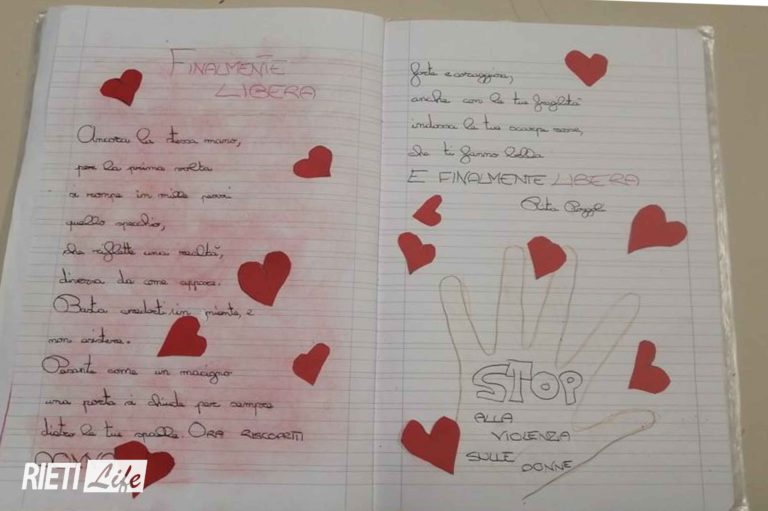 FINALMENTE
LIBERA
Ancora la stessa mano,
per la prima volta
si rompe in mille pezzi
quello specchio,
che riflette una realtà,
diversa da come appare.
Basta crederti in niente, e
non esistere.
Pesante come un macigno
una porta si chiude per sempre
dietro le tue spalle. ORA RISCOPRITI
DONNA
forte e coraggiosa,
anche con le tue fragilità
indossa le tue scarpe rosse,
che ti fanno bella
E FINALMENTE LIBERA
Rita
STOP
ALLA
VIOLENZA
SULLE
DONNE
RIETI Life